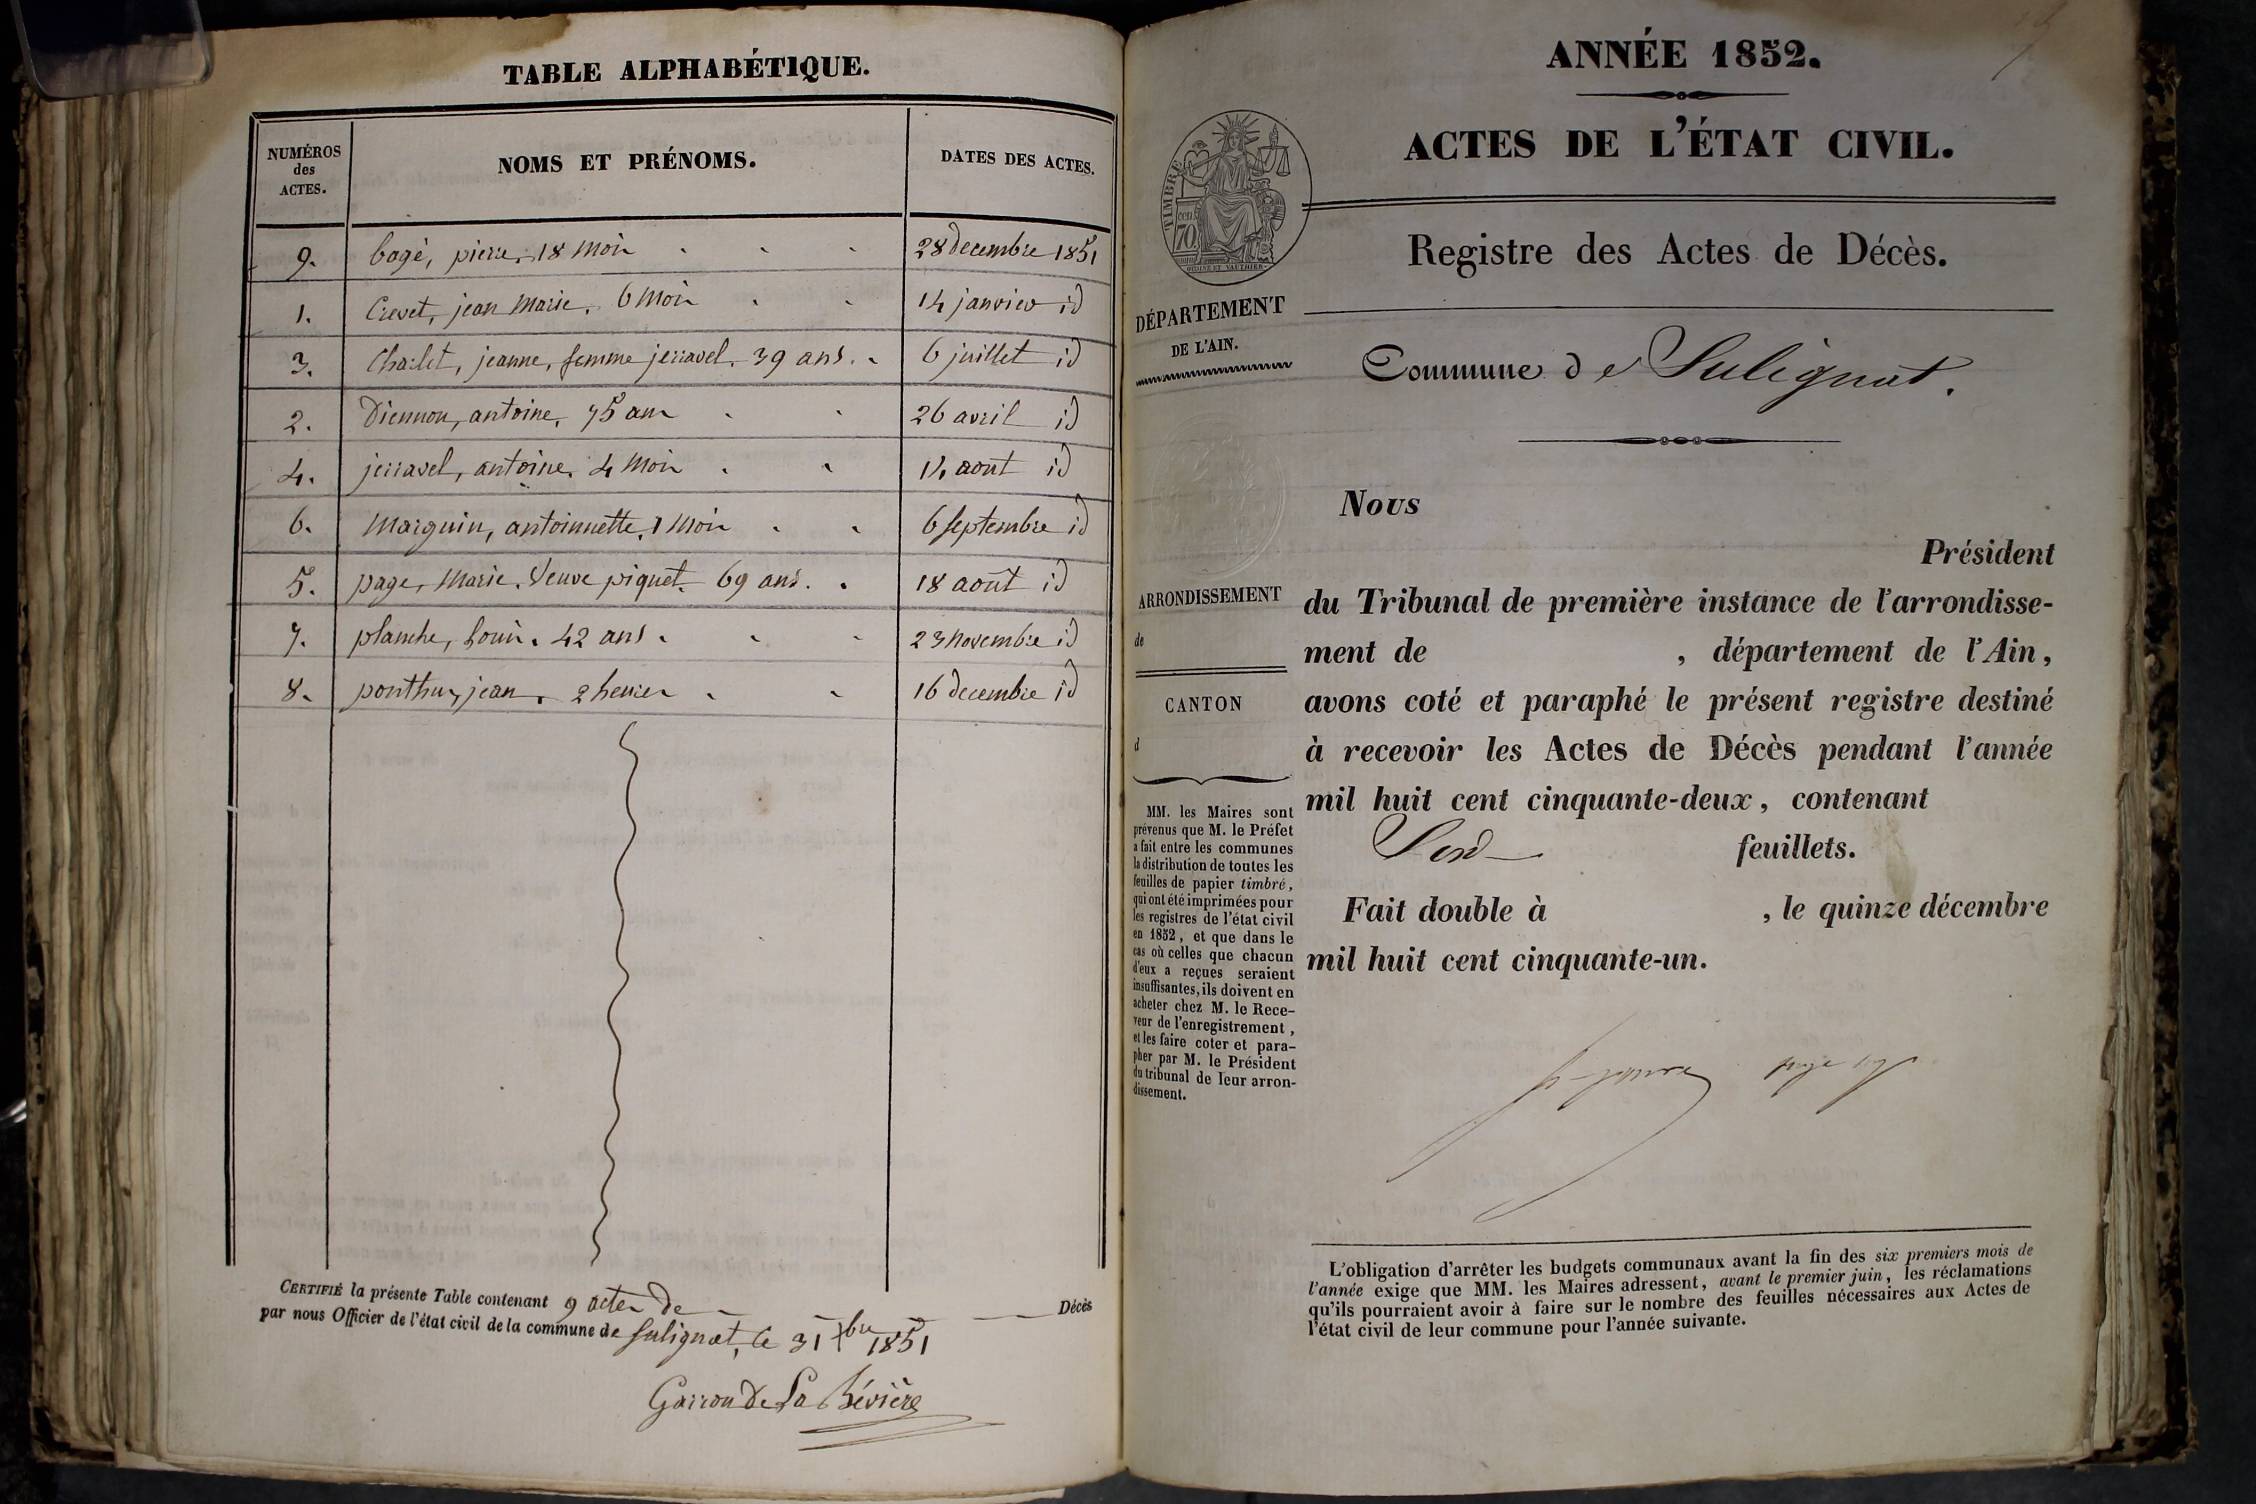 TABLE ALPHABÉTIQUE.
NUMÉROS
des
ACTES.
NOMS ET PRÉNOMS.
DATES DES ACTES.
9. bogé, pierre, 18 Mois 28 decembre 1851
1. Crevet, jean Marie, 6 Mois 14 janvier id
3. Charlet, jeanne, femme jerravel, 39 ans. 6 juillet id
2. Diennon, antoine, 75 ans 26 avril id
4. jerravel, antoine, 4 Mois 14 aout id
6. Marguin, antoinnette, 1 Mois 6 septembre id
5. page, Marie, Veuve piquet 69 ans. 18 août id
7. planche, Louis. 42 ans. 23 Novembre id
8. ponthus, jean, 2 heures 16 decembre id
CERTIFIÉ la présente Table contenant 9 actes de Décès
par nous Officier de l'état civil de la commune de Sulignat, le 31 Xbre 1851
Garron De La Bévière
ANNÉE 1852.
ACTES DE L'ÉTAT CIVIL.
TIMBRE
70
cen.
Registre des Actes de Décès.
DÉPARTEMENT
DE L'AIN.
Commune de Sulignat.
ARRONDISSEMENT
de
CANTON
d
MM. les Maires sont
prévenus que M. le Préfet
a fait entre les communes
la distribution de toutes les
feuilles de papier timbré,
qui ont été imprimées pour
les registres de l'état civil
en 1852, et que dans le
cas où celles que chacun
d'eux a reçues seraient
insuffisantes, ils doivent en
acheter chez M. le Rece-
veur de l'enregistrement,
et les faire coter et para-
pher par M. le Président
du tribunal de leur arron-
dissement.
Nous
Président
du Tribunal de première instance de l'arrondisse-
ment de , département de l'Ain,
avons coté et paraphé le présent registre destiné
à recevoir les Actes de Décès pendant l'année
mil huit cent cinquante-deux, contenant
feuillets.
Fait double à , le quinze décembre
mil huit cent cinquante-un.
L'obligation d'arrêter les budgets communaux avant la fin des six premiers mois de
l'année exige que MM. les Maires adressent, avant le premier juin, les réclamations
qu'ils pourraient avoir à faire sur le nombre des feuilles nécessaires aux Actes de
l'état civil de leur commune pour l'année suivante.